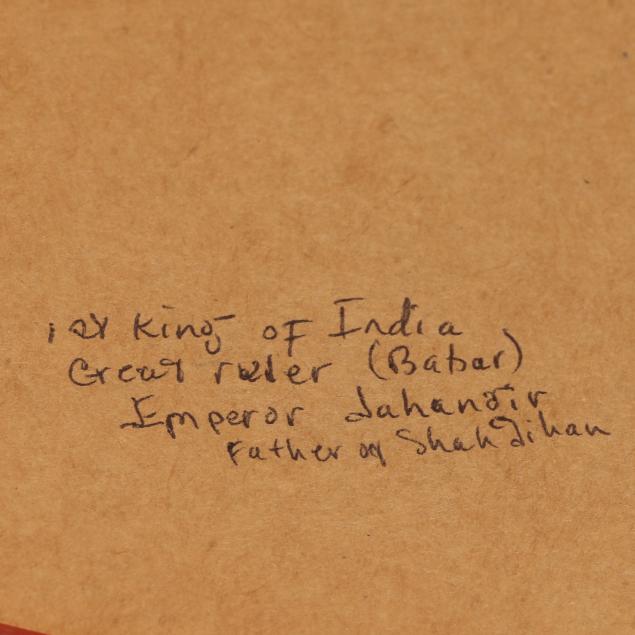 1st King of India
Great ruler (Babar)
Emperor Jahangir
Father of Shah Jihan